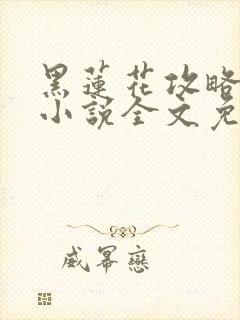 黑蓮花攻略
小說全文免
威冪戀